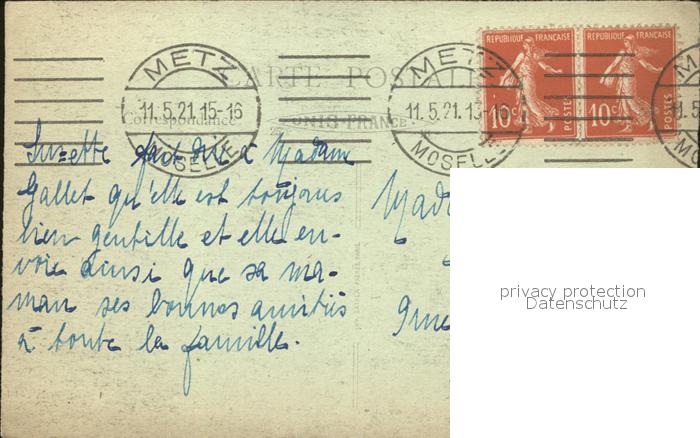 METZ
11.5.21.15-16
MOSELLE
CARTE POSTALE
METZ
11.5.21.15-16
MOSELLE
REPUBLIQUE FRANÇAISE
10c
POSTES
REPUBLIQUE FRANÇAISE
10c
POSTES
Correspondance
UNIS-FRANCE
Suzette fait dire à Madame
Gallet qu'elle est toujours
bien gentille et elle en-
voie ainsi que sa ma-
man ses bonnes amitiés
à toute la famille.
Mada
privacy protection
Datenschutz